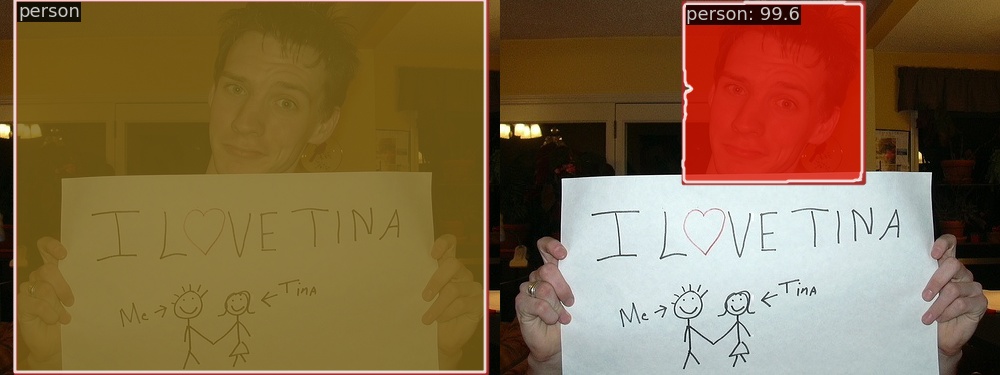 person
I L♡VE TINA
Me → ← TINA
person: 99.6
I L♡VE TINA
Me → ← TINA